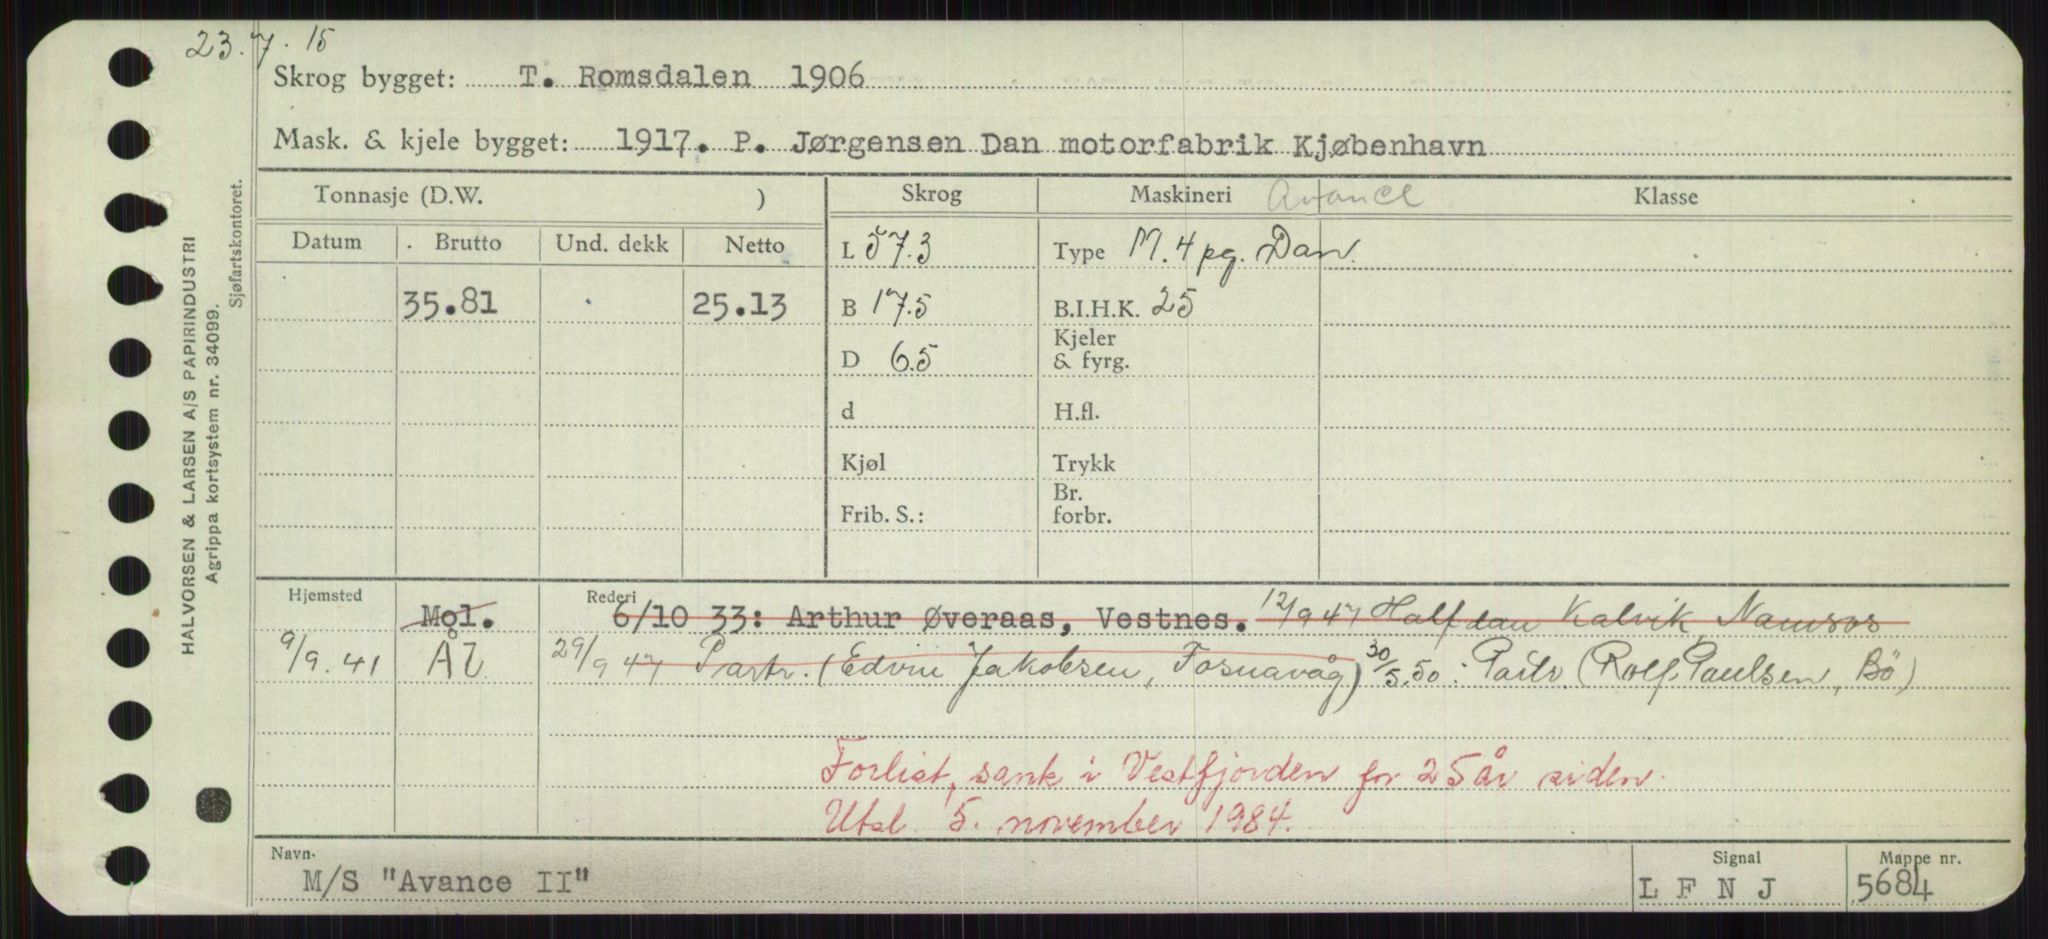 23.7.15
Skrog bygget: T. Romsdalen 1906
Mask. & kjele bygget: 1917. P. Jørgensen Dan motorfabrik Kjøbenhavn
Tonnasje (D.W. ) Skrog Maskineri Avance Klasse
Datum Brutto Und. dekk Netto L 57.3 Type M. 4 pg. Dan.
35.81 25.13 B 17.5 B.I.H.K. 25
D 6.5 Kjeler & fyrg.
d H.fl.
Kjøl Trykk
Frib. S.: Br. forbr.
Hjemsted Rederi
Mol. 6/10 33: Arthur Øveraas, Vestnes. 12/9 47 Halfdan Kalvik, Namsos
9/9.41 Ål 29/9 47 Partr. (Edvin Jakobsen, Fosnavåg) 30/5.50: Partr. (Rolf Paulsen, Bö)
Forlist, sank i Vestfjorden for 25 år siden.
Utsl. 5. november 1984.
Navn. Signal Mappe nr.
M/S "Avance II" L F N J 5684
HALVORSEN & LARSEN A/S PAPIRINDUSTRI
Agrippa kortsystem nr. 34099.
Sjøfartskontoret.